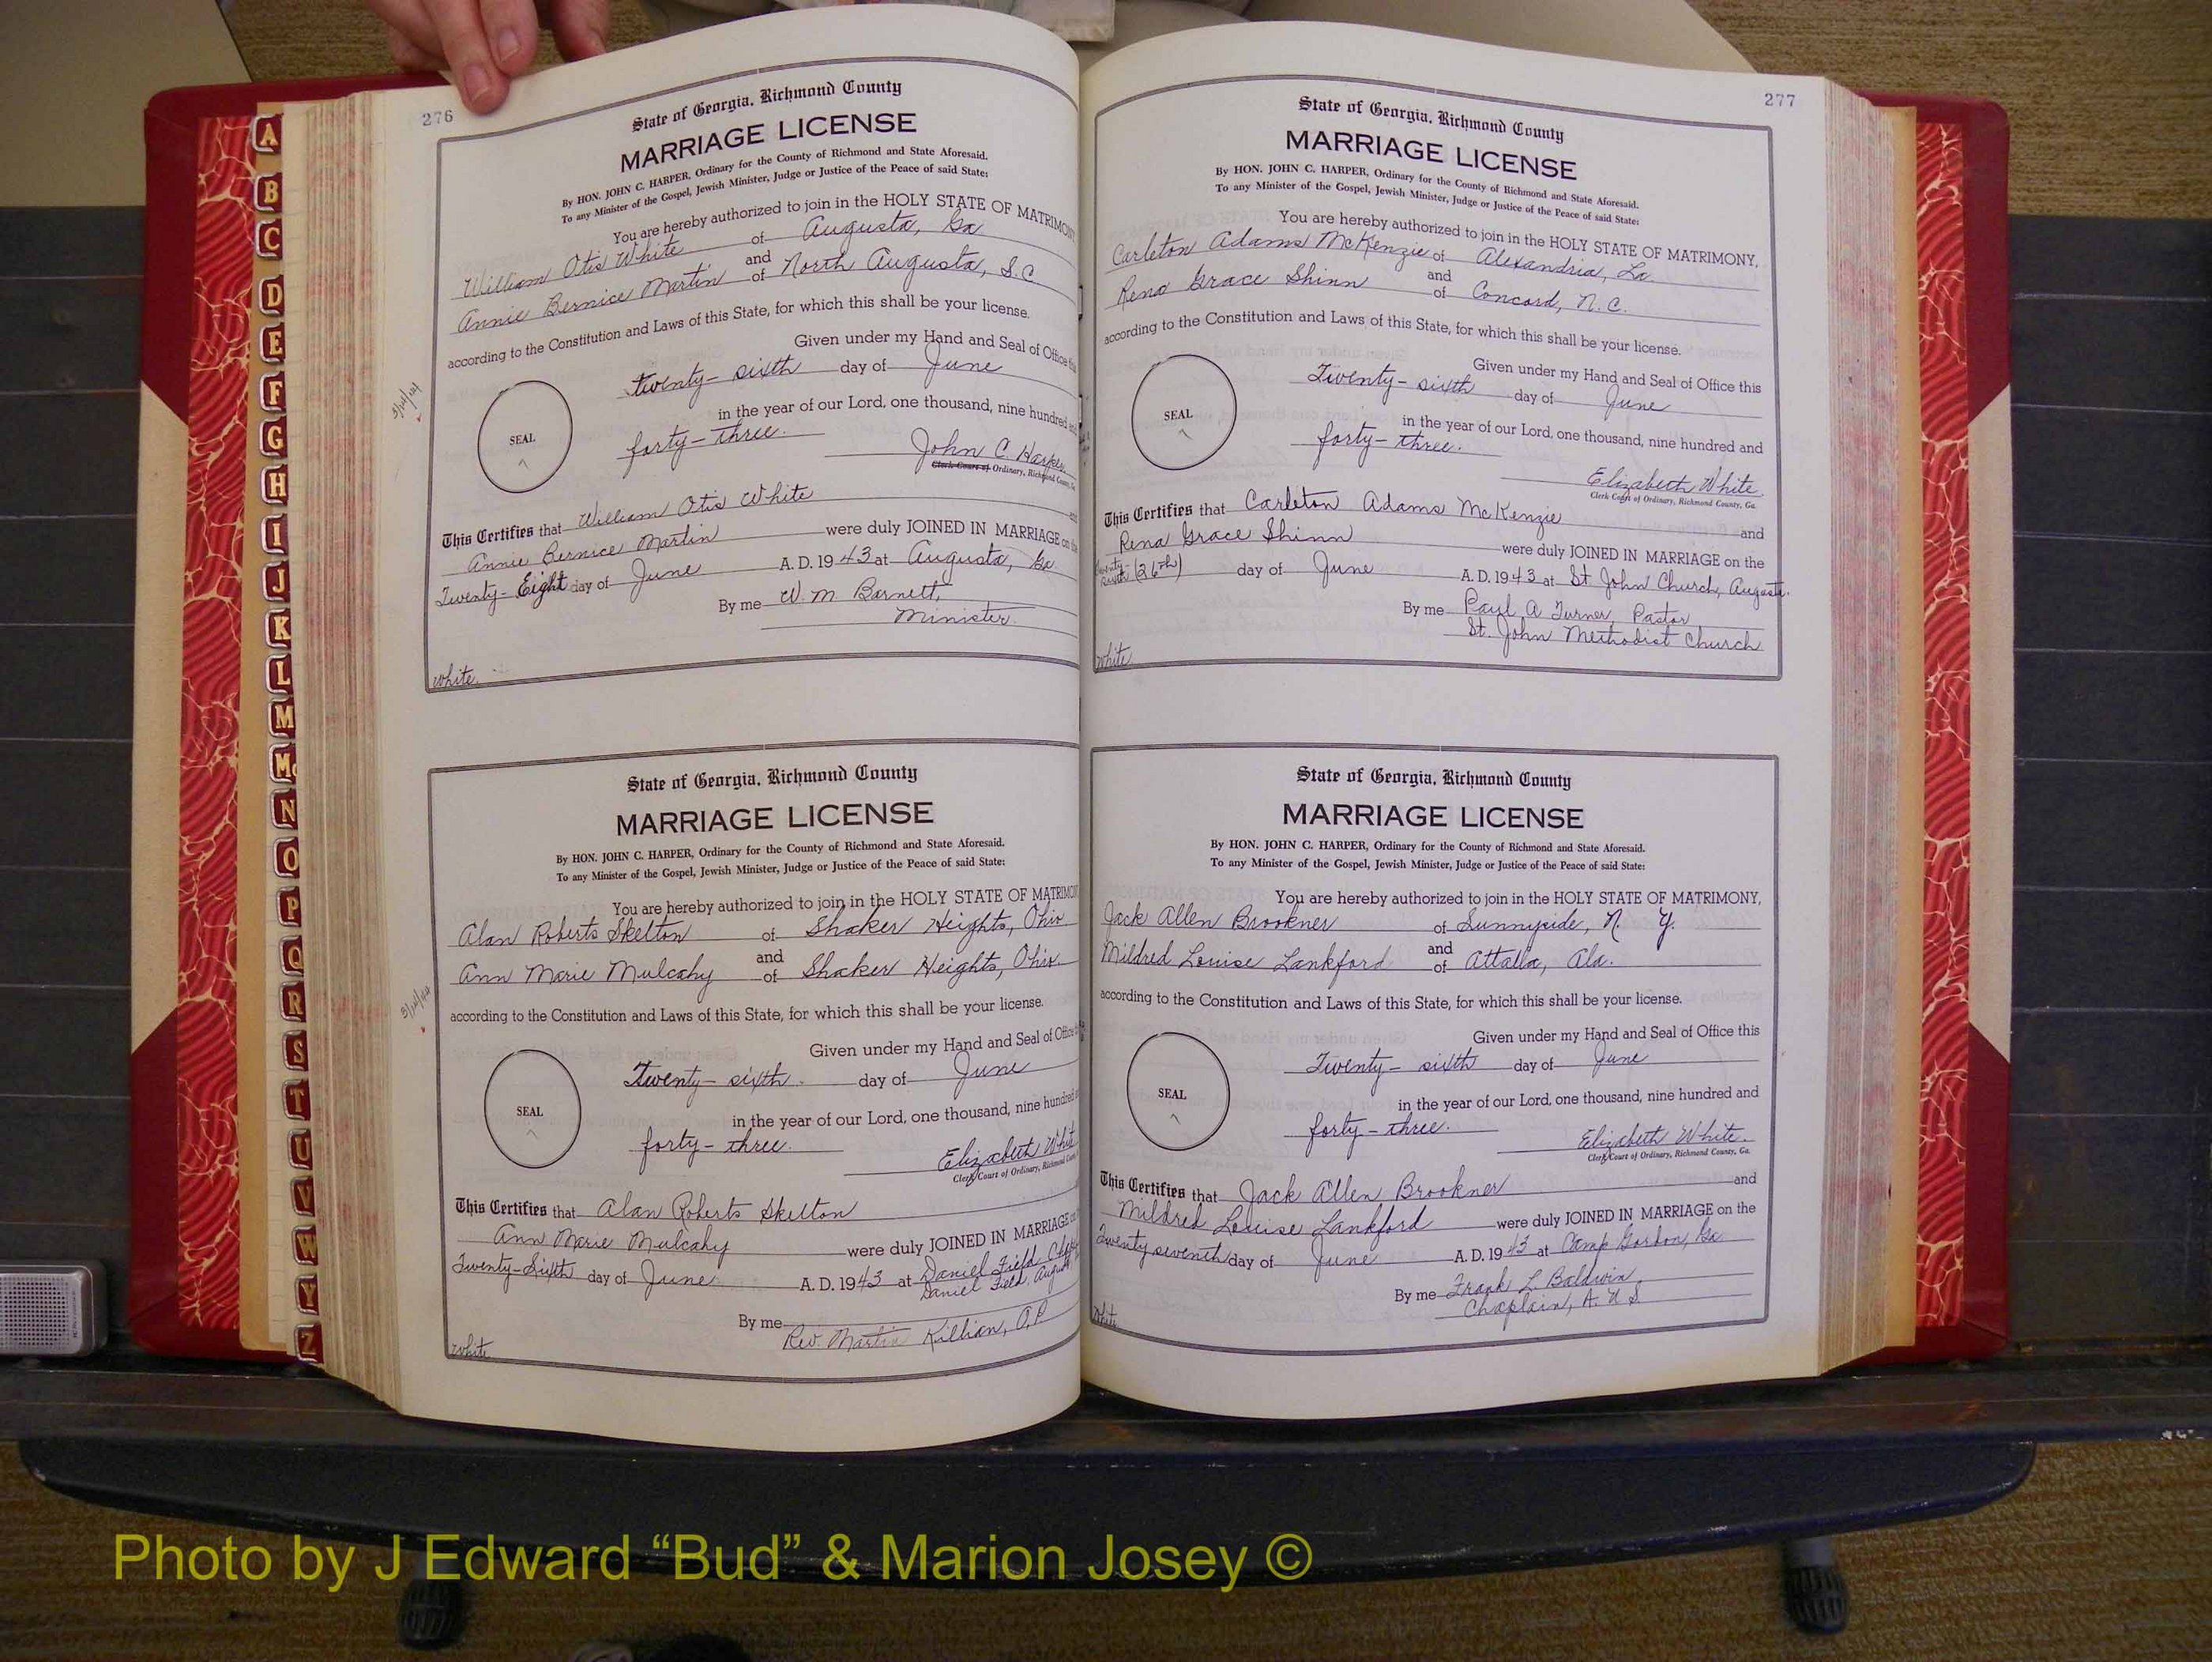 276
State of Georgia, Richmond County
MARRIAGE LICENSE
By HON. JOHN C. HARPER, Ordinary for the County of Richmond and State Aforesaid.
To any Minister of the Gospel, Jewish Minister, Judge or Justice of the Peace of said State:
You are hereby authorized to join in the HOLY STATE OF MATRIMONY
William Otis White of Augusta, Ga
and
Annie Bernice Martin of North Augusta, S.C.
according to the Constitution and Laws of this State, for which this shall be your license.
Given under my Hand and Seal of Office
twenty-sixth day of June
in the year of our Lord, one thousand, nine hundred
SEAL
forty-three.
John C. Harper
Clerk Court of Ordinary, Richmond County,
This Certifies that William Otis White
Annie Bernice Martin were duly JOINED IN MARRIAGE on
Twenty-Eight day of June A. D. 1943 at Augusta, Ga
By me W. M Barnett,
Minister
white
State of Georgia, Richmond County
MARRIAGE LICENSE
By HON. JOHN C. HARPER, Ordinary for the County of Richmond and State Aforesaid.
To any Minister of the Gospel, Jewish Minister, Judge or Justice of the Peace of said State:
You are hereby authorized to join in the HOLY STATE OF
Alan Roberts Skelton of Shaker Heights, Ohio
and
Ann Marie Mulcahy of Shaker Heights, Ohio
according to the Constitution and Laws of this State, for which this shall be your license.
Given under my Hand and Seal of Office
Twenty-sixth day of June
in the year of our Lord, one thousand, nine hundred
SEAL
forty-three.
Elizabeth White
Clerk Court of Ordinary, Richmond
This Certifies that Alan Roberts Skelton
Ann Marie Mulcahy were duly JOINED IN MARRIAGE
Twenty-Sixth day of June A. D. 1943 at Daniel Field
Daniel Field,
By me Rev. Martin Killian, O.P
white
277
State of Georgia, Richmond County
MARRIAGE LICENSE
By HON. JOHN C. HARPER, Ordinary for the County of Richmond and State Aforesaid.
To any Minister of the Gospel, Jewish Minister, Judge or Justice of the Peace of said State:
You are hereby authorized to join in the HOLY STATE OF MATRIMONY,
Carleton Adams McKenzie of Alexandria, La.
and
Rena Grace Shinn of Concord, N.C.
according to the Constitution and Laws of this State, for which this shall be your license.
Given under my Hand and Seal of Office this
Twenty-sixth day of June
in the year of our Lord, one thousand, nine hundred and
SEAL
forty-three.
Elizabeth White
Clerk Court of Ordinary, Richmond County, Ga.
This Certifies that Carleton Adams McKenzie and
Rena Grace Shinn were duly JOINED IN MARRIAGE on the
(26th) day of June A. D. 1943 at St John Church, Augusta.
By me Paul A Turner, Pastor
St. John Methodist Church
white
State of Georgia, Richmond County
MARRIAGE LICENSE
By HON. JOHN C. HARPER, Ordinary for the County of Richmond and State Aforesaid.
To any Minister of the Gospel, Jewish Minister, Judge or Justice of the Peace of said State:
You are hereby authorized to join in the HOLY STATE OF MATRIMONY,
Jack Allen Brookner of Sunnyside, N. Y.
and
Mildred Louise Lankford of Attalla, Ala.
according to the Constitution and Laws of this State, for which this shall be your license.
Given under my Hand and Seal of Office this
Twenty-sixth day of June
in the year of our Lord, one thousand, nine hundred and
SEAL
forty-three.
Elizabeth White.
Clerk Court of Ordinary, Richmond County, Ga.
This Certifies that Jack Allen Brookner and
Mildred Louise Lankford were duly JOINED IN MARRIAGE on the
Twenty seventh day of June A. D. 1943 at Camp Gordon, Ga
By me Frank L. Baldwin
Chaplain, A. U S.
white
A
B
C
D
E
F
G
H
I
J
K
L
M
Mc
N
O
P
Q
R
S
T
U
V
W
Y
Z
Photo by J Edward “Bud” & Marion Josey ©